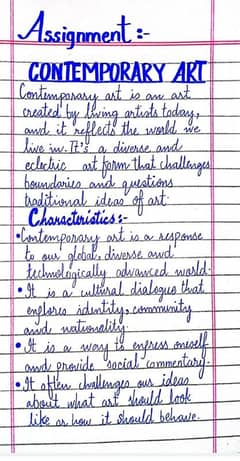 Assignment :-
CONTEMPORARY ART
Contemporary art is an art
created by living artists today,
and it reflects the world we
live in. It's a diverse and
eclectric art form that challenges
boundaries and questions
traditional ideas of art.
Characteristics :-
• Contemporary art is a response
to our global, diverse and
technologically advanced world.
• It is a cultural dialogue that
explores identity, community
and nationality.
• It is a way to express oneself
and provide social commentary.
• It often challenges our ideas
about what art should look
like or how it should behave.